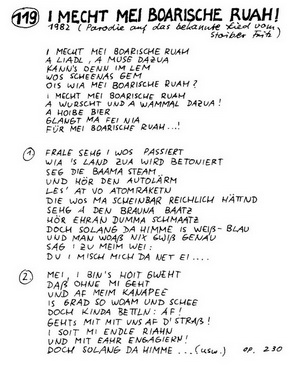 119 I MECHT MEI BOARISCHE RUAH!
1982 (Parodie auf das bekannte Lied vom
Stoiber Fritz)
I MECHT MEI BOARISCHE RUAH
A LIADL, A MUSE DAZUA
KANN'S DENN IM LEM
WOS SCHEENAS GEM
OIS WIA MEI BOARISCHE RUAH?
I MECHT MEI BOARISCHE RUAH
A WURSCHT UND A WAMMAL DAZUA!
A HOIBE BIER
GLANGT MA FEI NIA
FÜR MEI BOARISCHE RUAH...!
1 FRALE SEHG I WOS PASSIERT
WIA 'S LAND ZUA WIRD BETONIERT
SEG DIE BAAMA STEAM
UND HÖR DEN AUTOLÄRM
LES' AT VO ATOMRAKETN
DIE WOS MA SCHEINBAR REICHLICH HÄTTND
SEHG A DEN BRAUNA BAATZ
HÖR EHRAN DUMMA SCHMAATZ
DOCH SOLANG DA HIMME IS WEIß-BLAU
UND MAN WOAß NIX GWIß GENAU
SAG I ZU MEIM WEI:
DU I MISCH MICH DA NET EI....
2 MEI, I BIN'S HOIT GWEHT
DAß OHNE MI GEHT
UND AF MEIM KANAPEE
IS GRAD SO WOAM UND SCHEE
DOCH KINDA BETTLN: AF!
GEHTS MIT MIT UNS AF D'STRAß!
I SOIT MI ENDLE RIAHN
UND MIT EAHR ENGAGIERN!
DOCH SOLANG DA HIMME...(usw.) op. 230